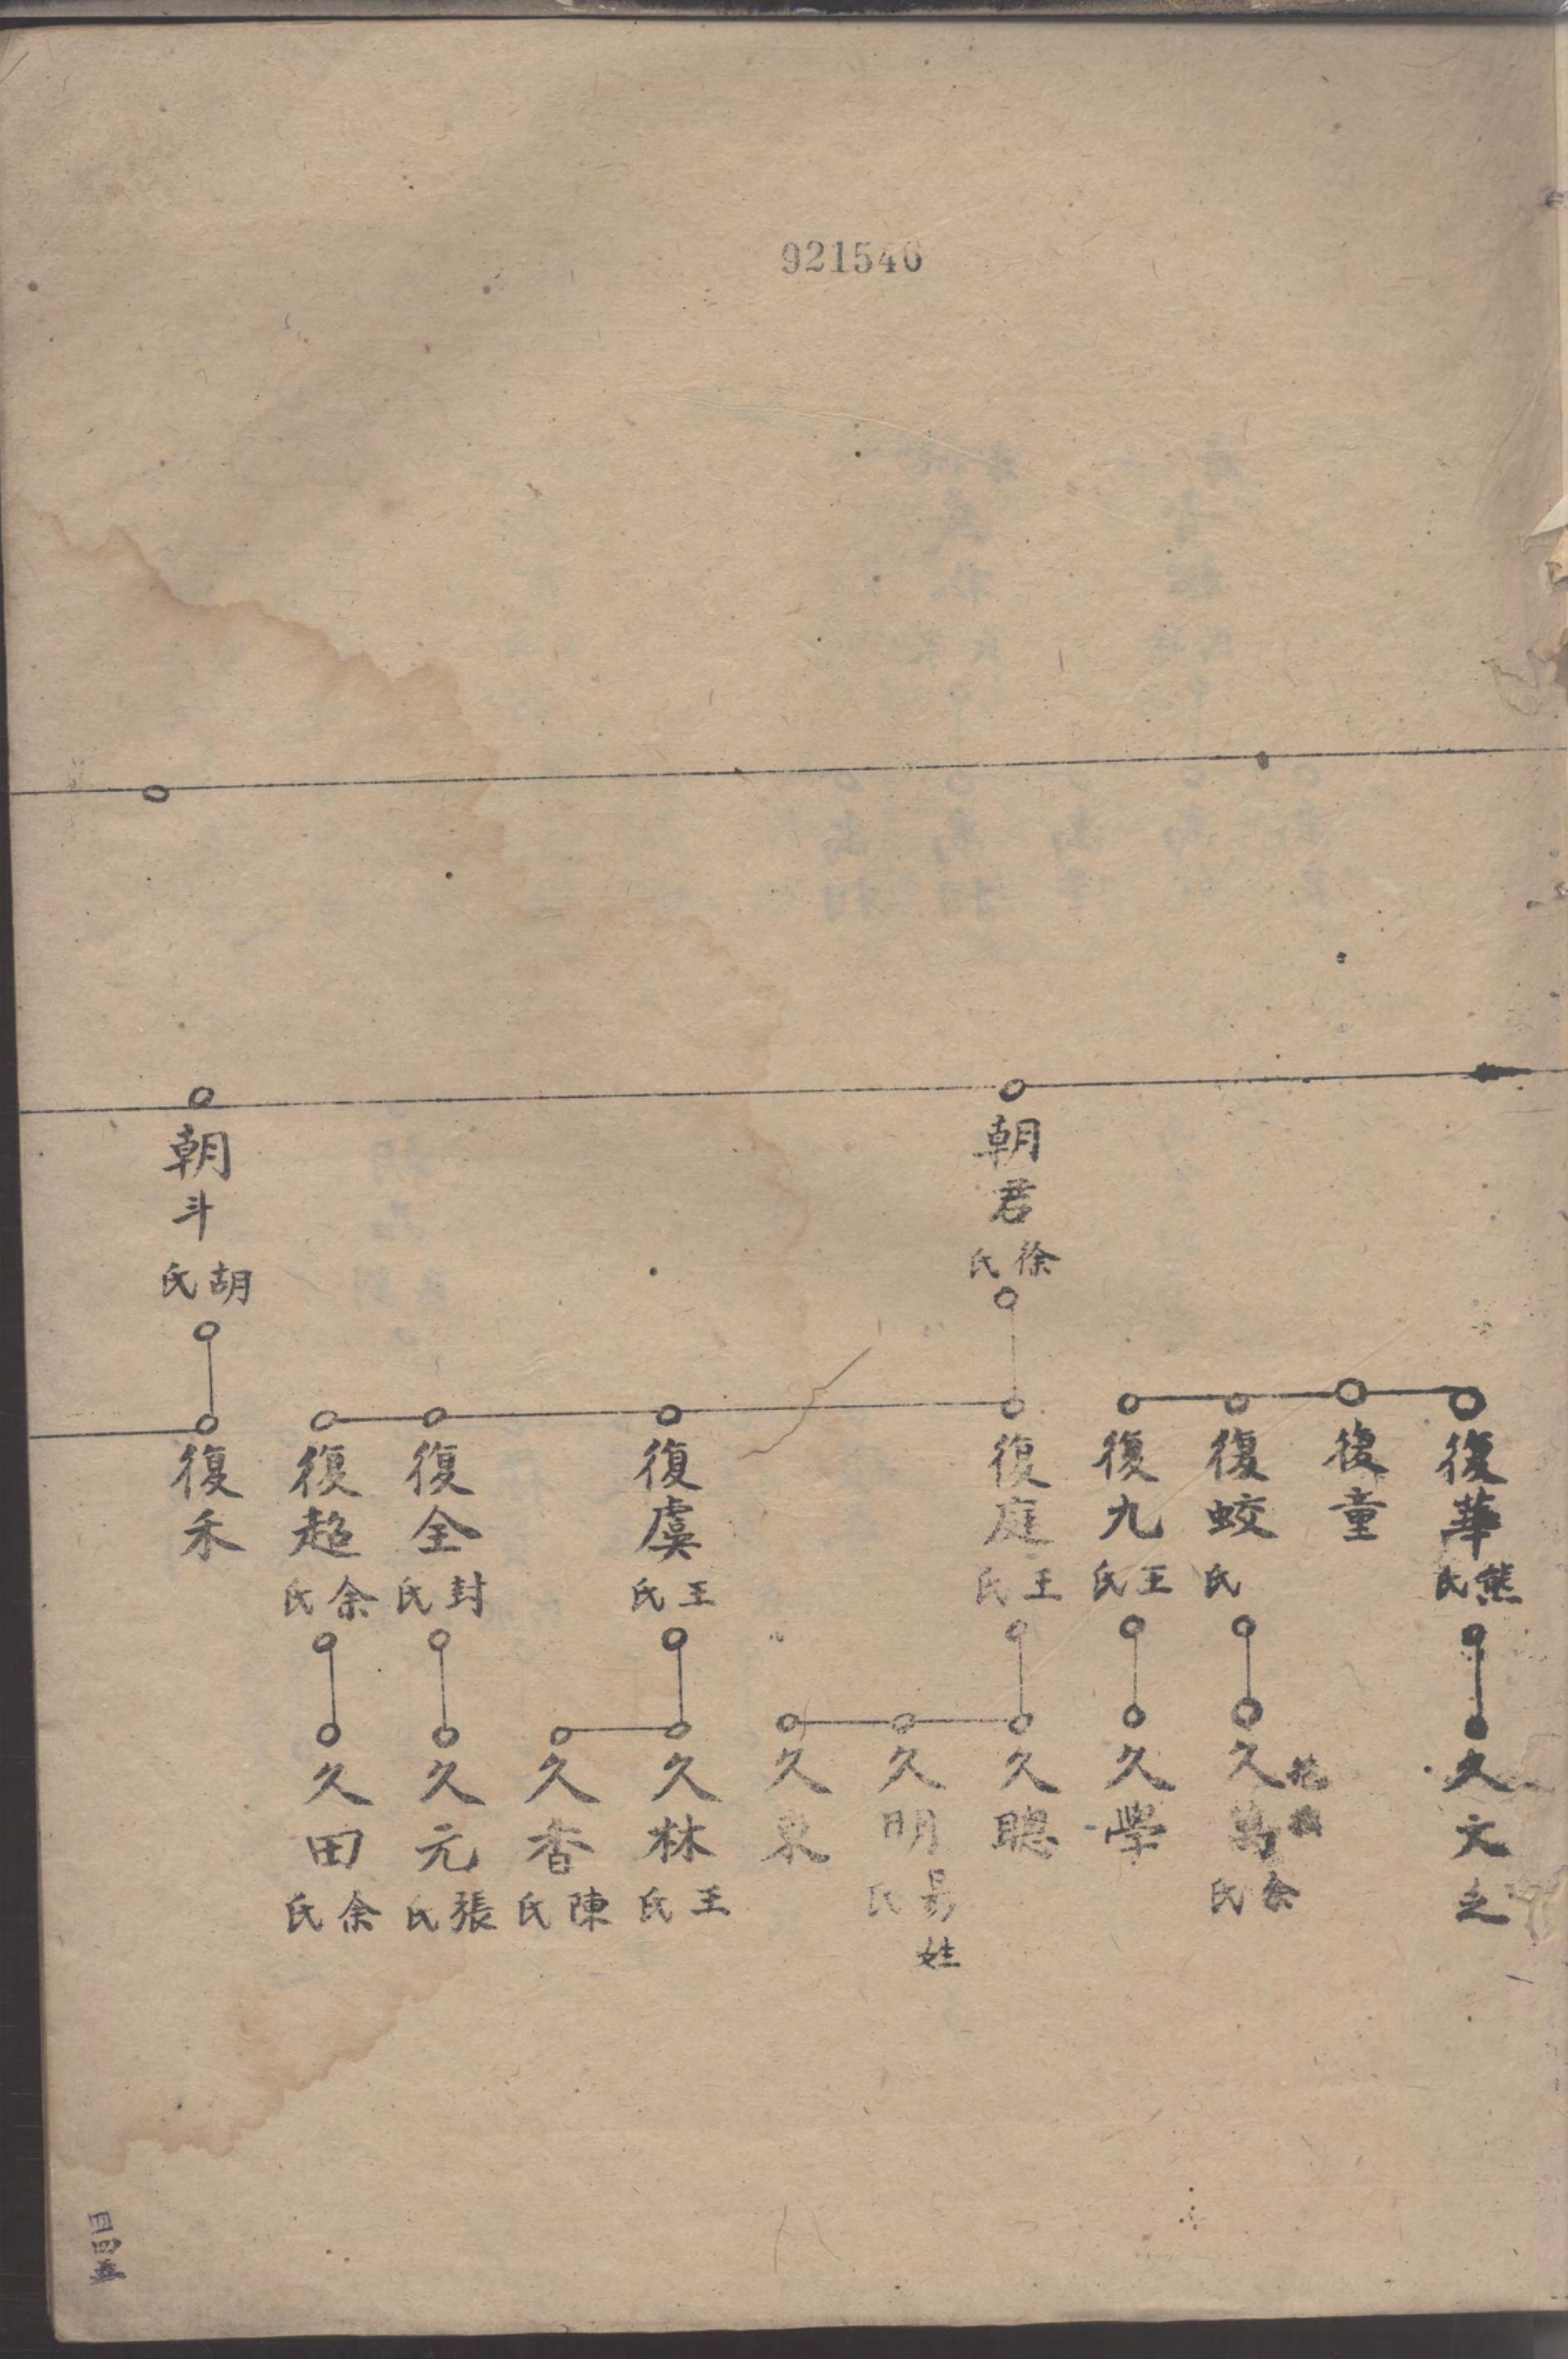 921546
朝君
徐氏
朝斗
胡氏
復華
熊氏
復童
復蛟
氏
復九
王氏
復庭
王氏
復虞
王氏
復全
封氏
復超
余氏
復禾
久文
久
余氏
久學
久聰
久明
易氏
姓
久東
久林
王氏
久香
陳氏
久元
張氏
久田
余氏